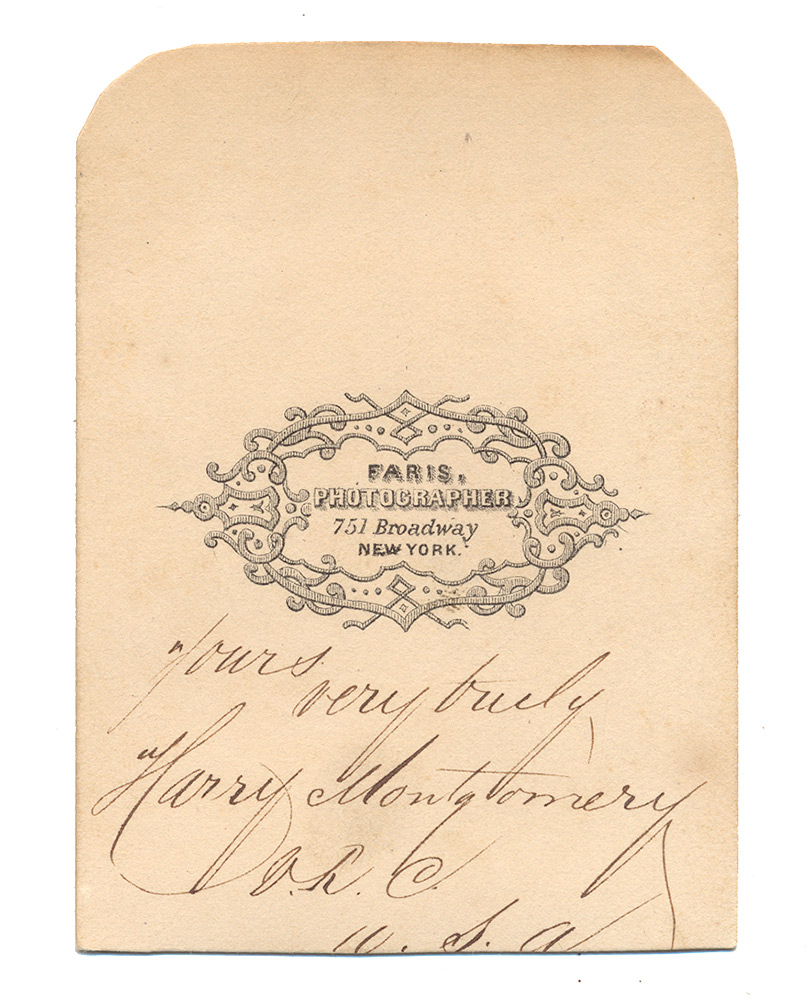 FARIS,
PHOTOGRAPHER,
751 Broadway
NEW YORK.
Yours
very truly
Harry Montgomery
U. S. A